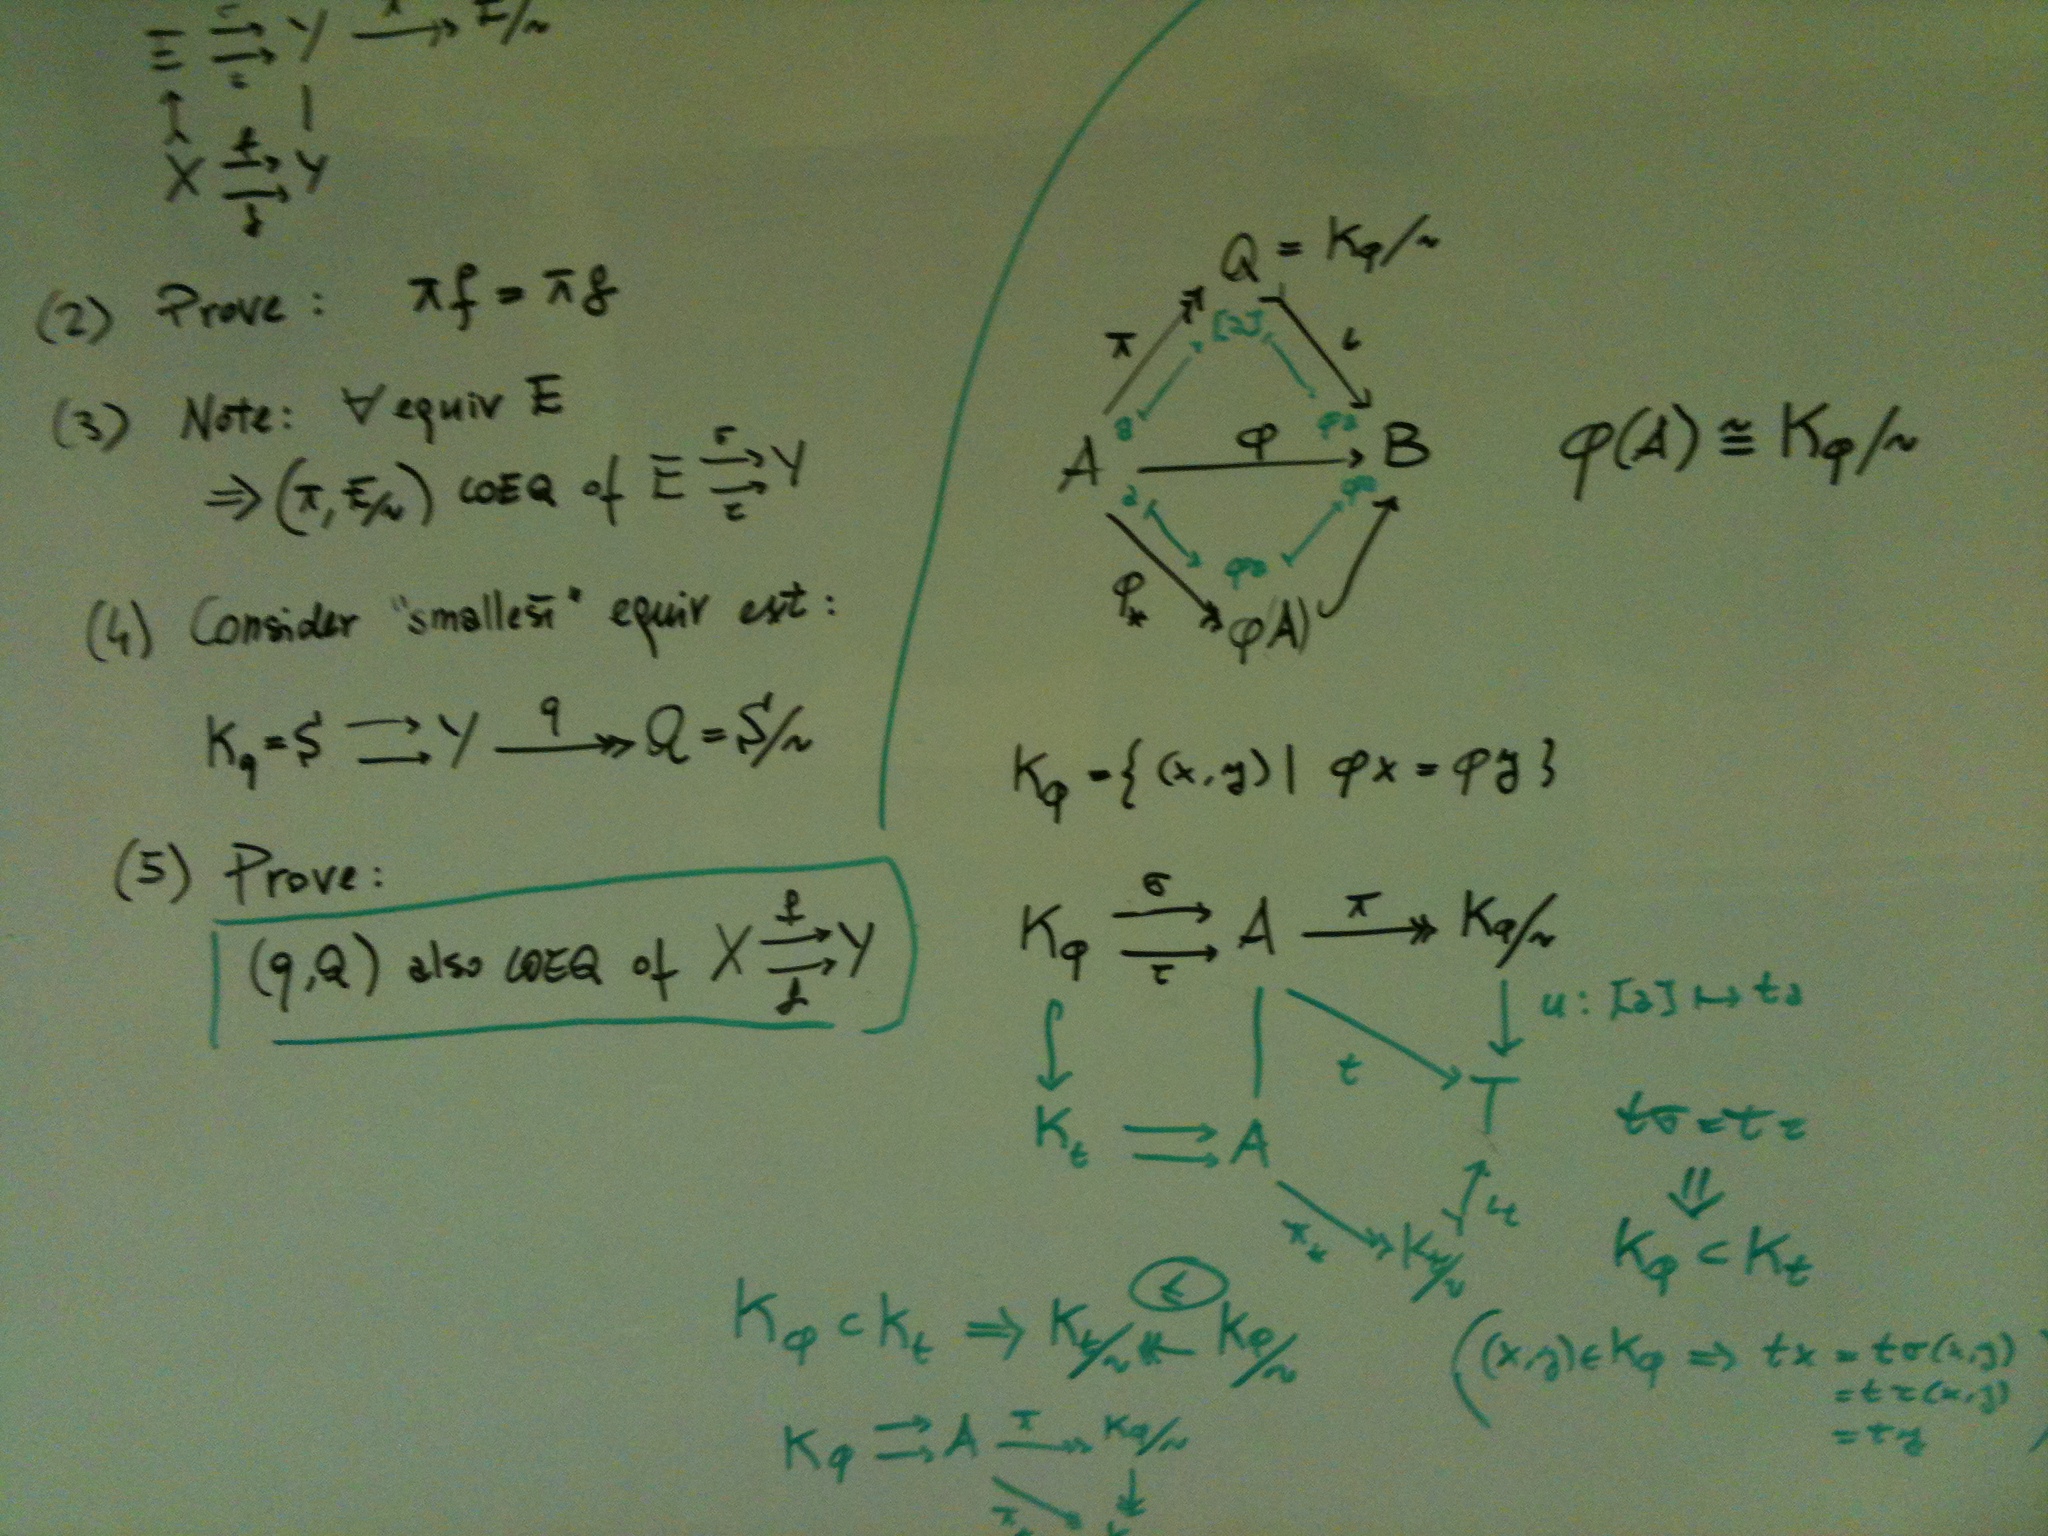 E ⇉ Y ↠ E/~
X ⇉ Y
f
g
(2) Prove: πf = πg
(3) Note: ∀ equiv E
⇒ (π, E/~) COEQ of E ⇉ Y
σ
τ
(4) Consider "smallest" equiv ext:
K_q = S ⇉ Y ↠ Q = S/~
q
(5) Prove:
(q, Q) also COEQ of X ⇉ Y
f
g
Q = K_φ/~
π
[a]
ι
a
φa
A → B
φ
a
φa
φa
φ_*
φ(A)
φ(A) ≅ K_φ/~
K_φ = { (x,y) | φx = φy }
K_φ ⇉ A ↠ K_φ/~
σ
τ
π
u: [a] ↦ ta
t
T
K_t ⇉ A
π_*
K_t/~
ι_t
tσ = tτ
⇓
K_φ ⊂ K_t
K_φ ⊂ K_t ⇒ K_t/~ ↞ K_φ/~
≤
((x,y) ∈ K_φ ⇒ tx = tσ(x,y)
= tτ(x,y)
= ty)
K_φ ⇉ A ↠ K_φ/~
π